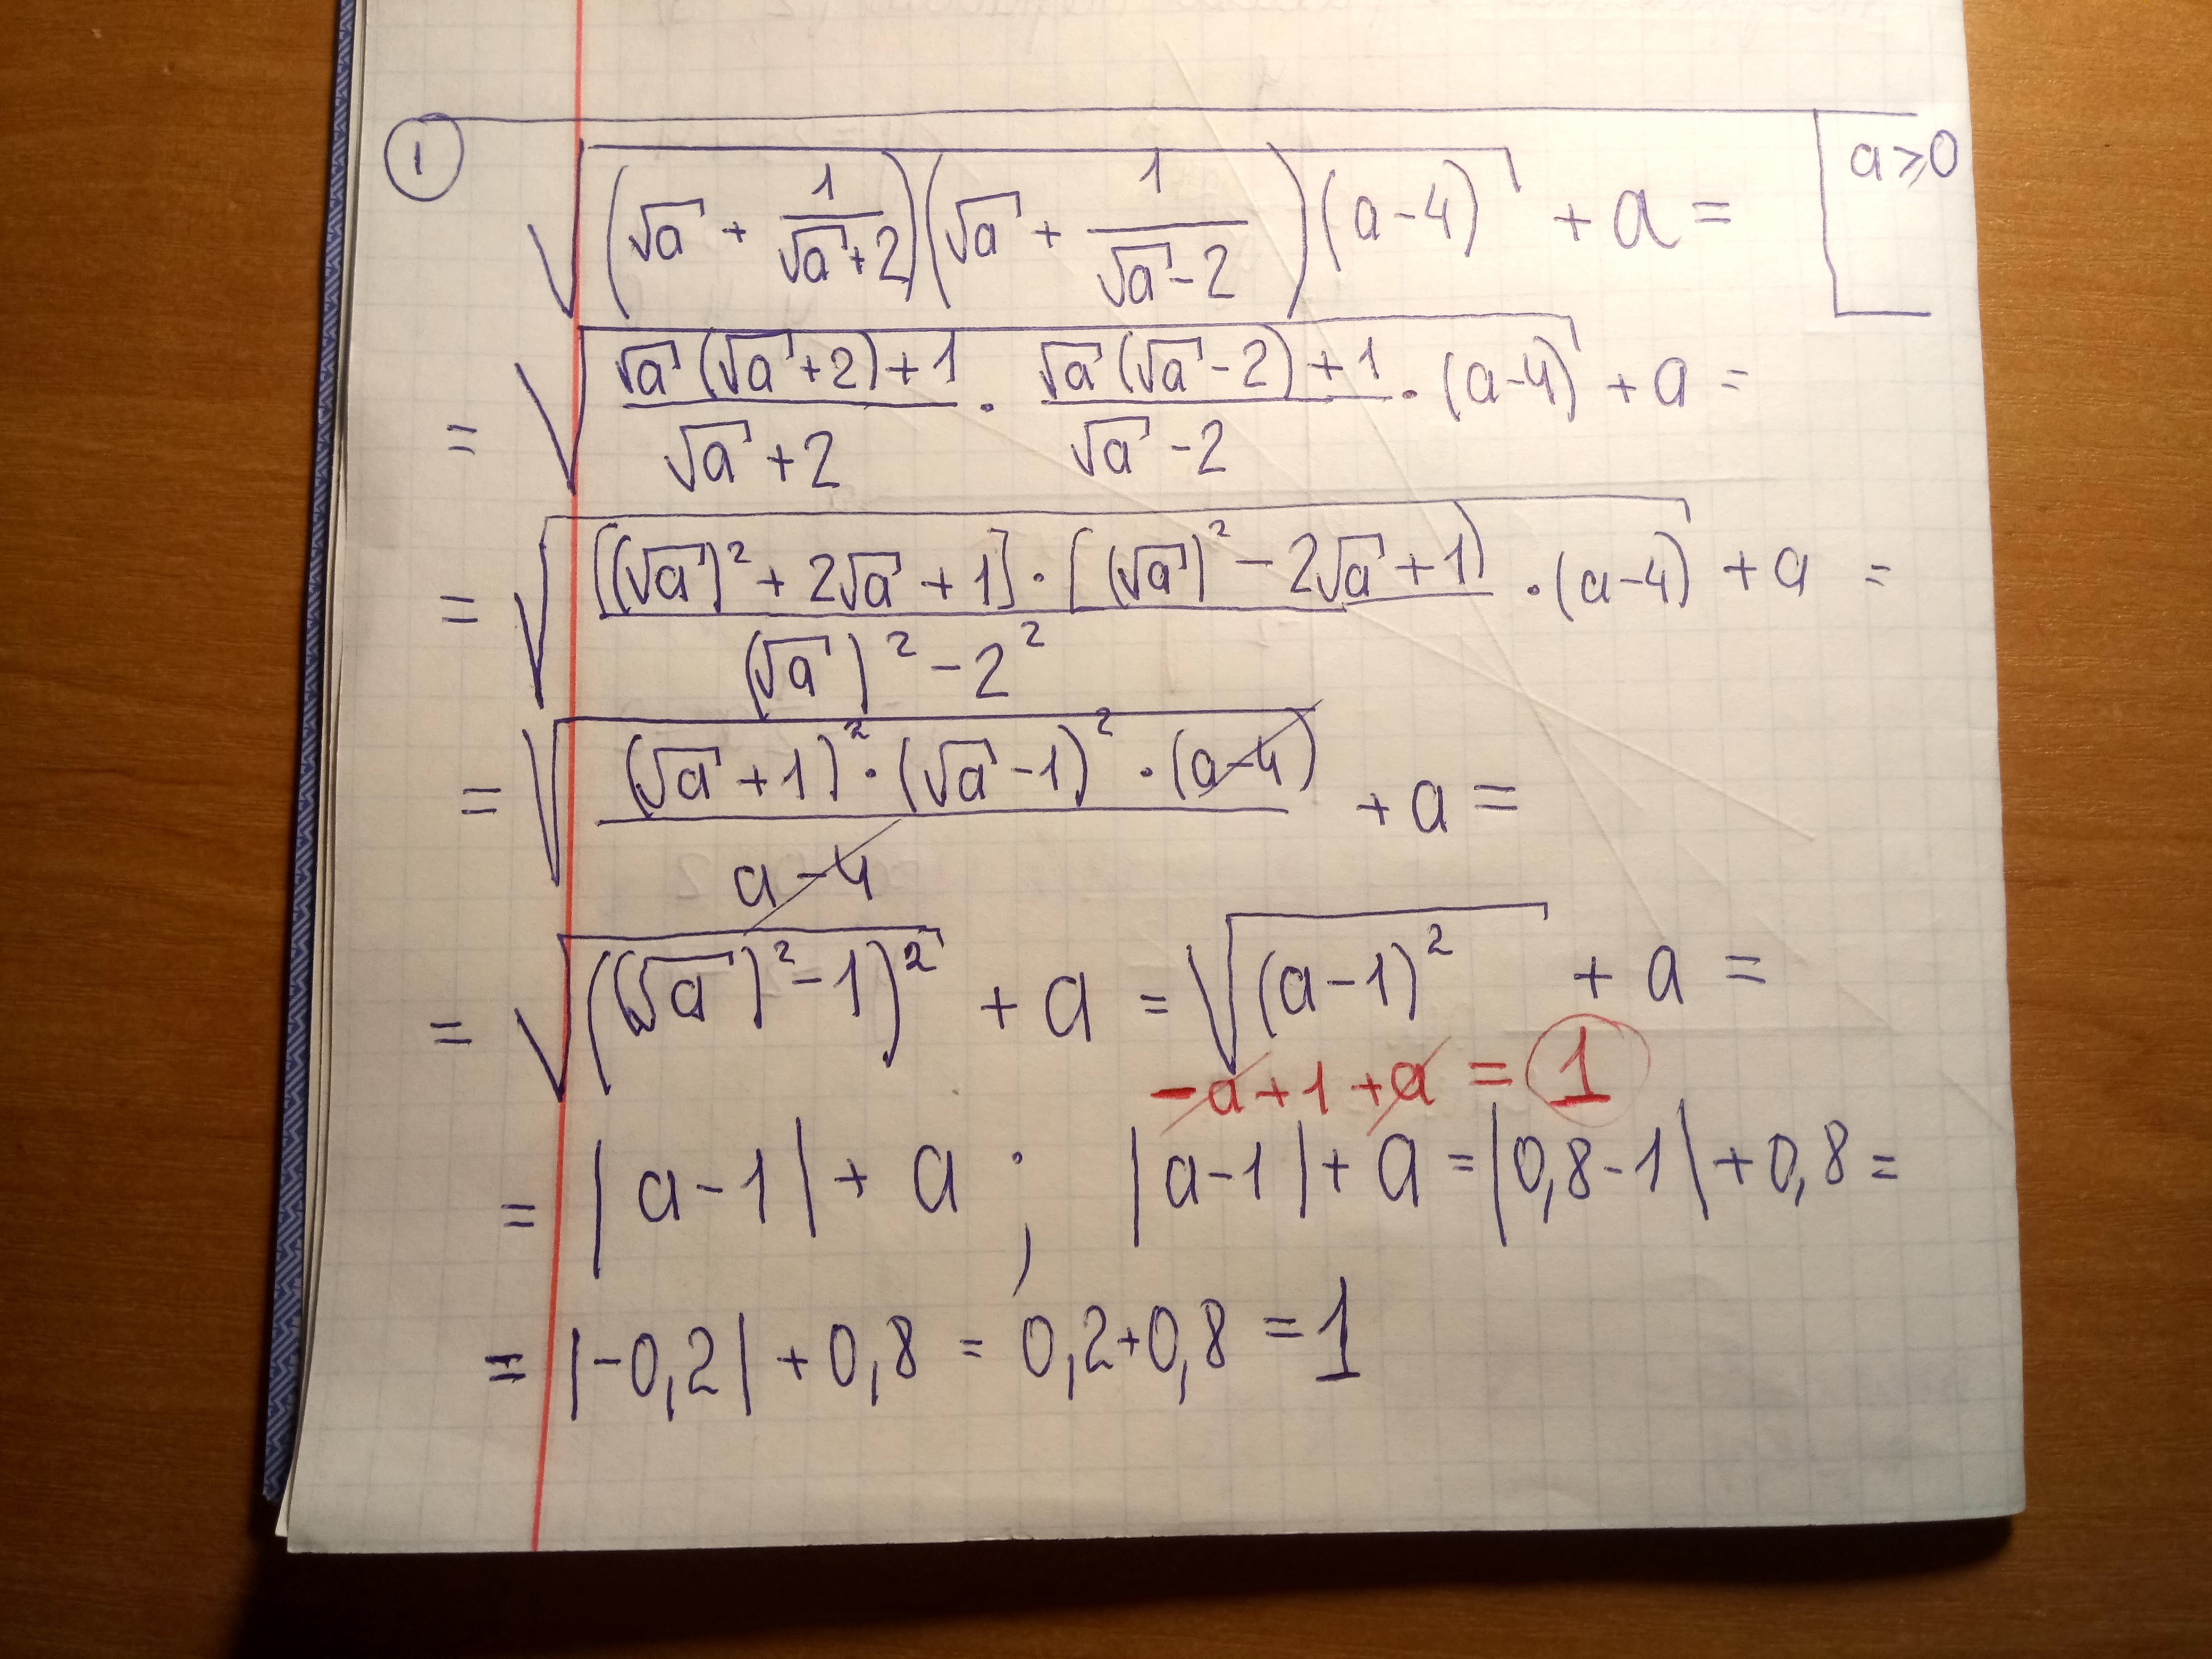 ① √((√a + 1/(√a+2))(√a + 1/(√a-2))(a-4)) + a = [a ⩾ 0
= √((√a(√a+2)+1)/(√a+2) · (√a(√a-2)+1)/(√a-2) · (a-4)) + a =
= √([(√a)² + 2√a + 1] · [(√a)² - 2√a + 1)/((√a)² - 2²) · (a-4)) + a =
= √((√a+1)² · (√a-1)² · (a-4)/(a-4)) + a =
= √(((√a)² - 1)²) + a = √((a-1)²) + a =
-a + 1 + a = 1
= |a-1| + a ; |a-1| + a = |0,8-1| + 0,8 =
= |-0,2| + 0,8 = 0,2+0,8 = 1